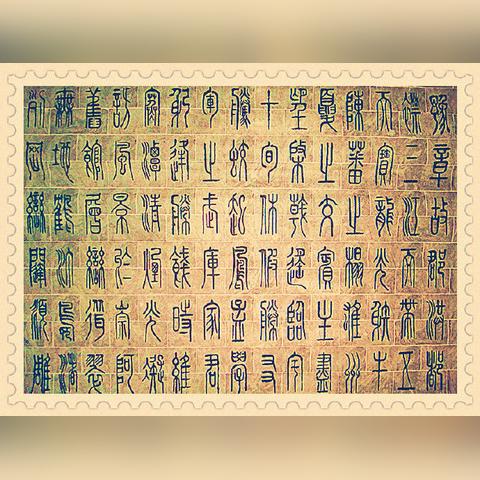 豫章故郡洪都
襟三江而帶五
天寶龍光射牛
陳蕃之榻雄州
夏之交賓主盡
望棨戟遙臨宇
十旬休假勝友
騰蛟起鳳孟學
軍之武庫家君
躬逢勝餞時維
寒潭清煙光凝
訪風景於崇阿
舊館層巒聳翠
無地鶴汀鳧渚
列岡巒闥俯雕